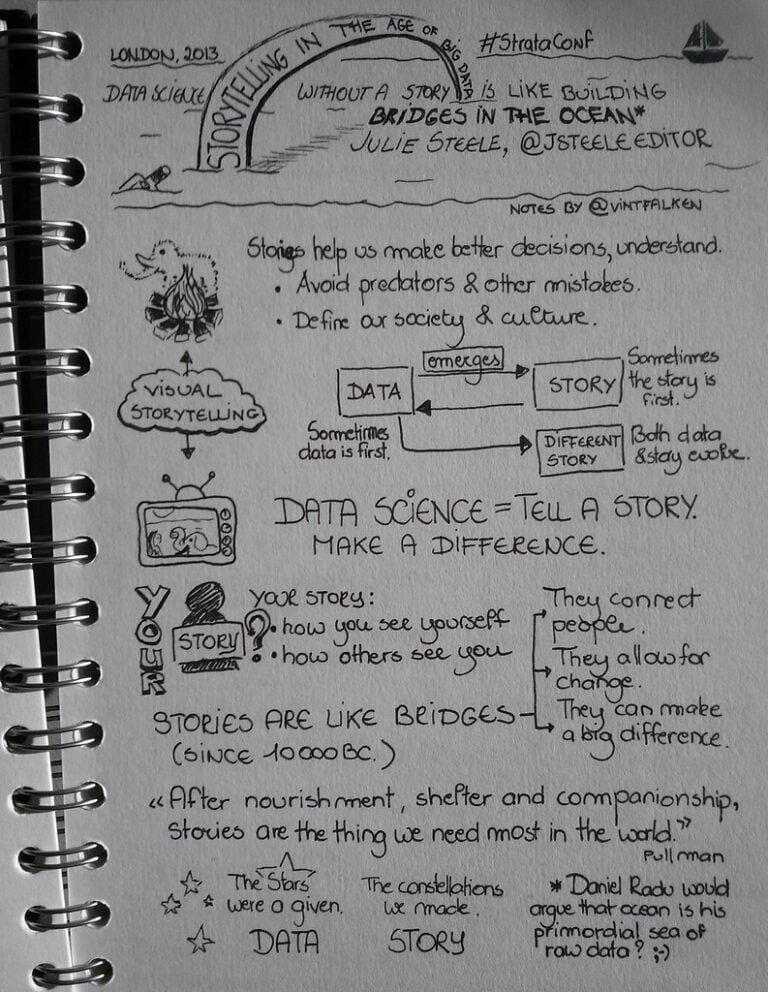 LONDON, 2013
STORYTELLING IN THE AGE OF BIG DATA
#StrataConf
DATA SCIENCE WITHOUT A STORY IS LIKE BUILDING
BRIDGES IN THE OCEAN*
JULIE STEELE, @JSTEELEEDITOR
NOTES BY @VINTFALKEN
Stories help us make better decisions, understand.
• Avoid predators & other mistakes.
• Define our society & culture.
VISUAL
STORYTELLING
DATA
emerges
STORY
Sometimes
the story is
first.
Sometimes
data is first.
DIFFERENT
STORY
Both data
& story evolve.
DATA SCIENCE = TELL A STORY.
MAKE A DIFFERENCE.
YOUR
STORY
?
YOUR STORY:
• how you see yourself
• how others see you
STORIES ARE LIKE BRIDGES
(SINCE 10000BC.)
They connect
people.
They allow for
change.
They can make
a big difference.
«After nourishment, shelter and companionship,
stories are the thing we need most in the world.»
Pullman
The Stars
were a given.
DATA
The constellations
we made.
STORY
* Daniel Radu would
argue that ocean is his
primordial sea of
raw data? ;-)